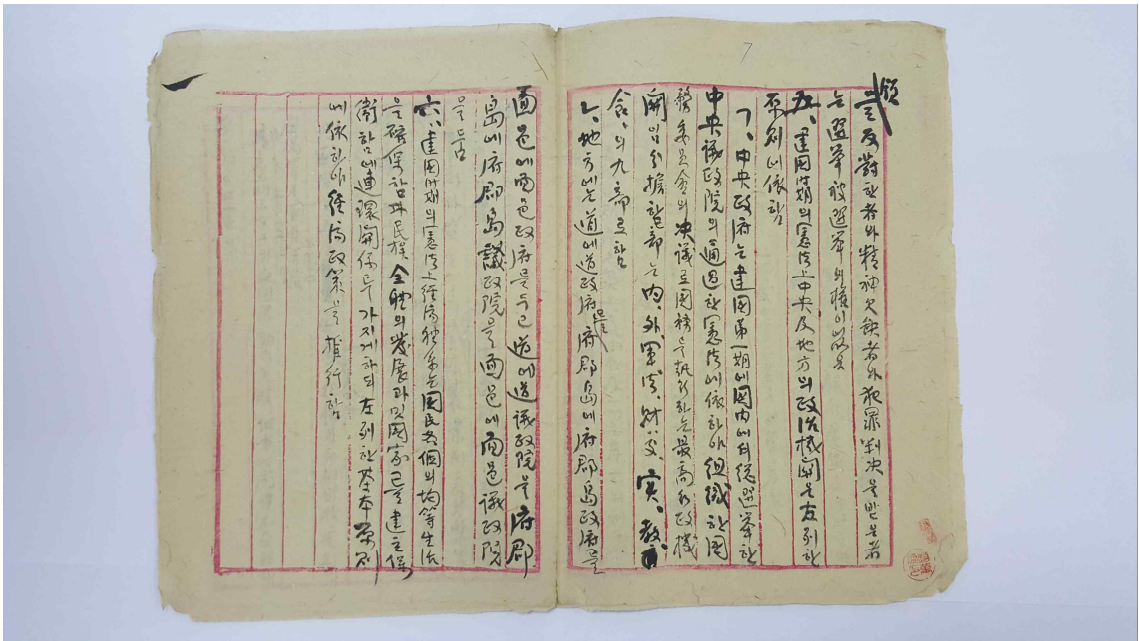 7
領을反對한者와精神欠缺者와犯罪判決을받은者
는選擧被選擧의權이없음
五、建國時期의憲法上中央及地方의政治機關은左列한
原則에依함
ㄱ、中央政府는建國第一期에國內에서總選擧한
中央議政院의通過한憲法에依하야組織한國
務委員會의决議로國務를執行하는最高行政機
關임分擔할部는內、外、軍、法、財、交、實、敎、
會、의九部로함
ㄴ、地方에는道에道政府府郡島에府郡島政府를
面邑에面邑政府를두고道에道議政院을府郡
島에府郡島議政院을面邑에面邑議政院
을둠
六、建國時期의憲法上經濟體系는國民各個의均等生活
을確保함과民族全體의發展과및國家를建立保
衛함에連環關係를가지게하되左列한基本原則
에依하야經濟政策을推行함